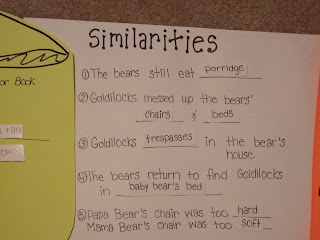 Similarities
or Book
ran
① The bears still eat porridge
② Goldilocks messed up the bears'
chairs & beds
③ Goldilocks trespasses in the bear's
house
④ The bears return to find Goldilocks
in baby bear's bed
⑤ Papa Bear's chair was too hard
Mama Bear's chair was too soft.